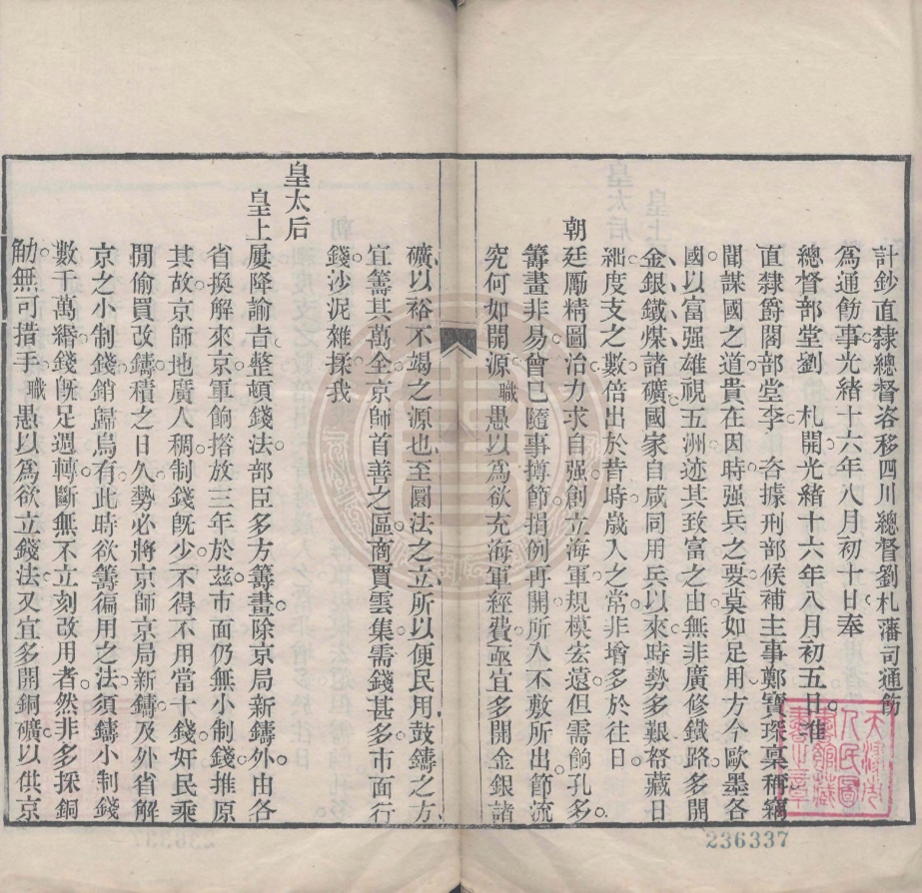 計鈔直隸總督咨移四川總督劉札藩司通飭
爲通飭事光緒十六年八月初十日奉
總督部堂劉 札開光緒十六年八月初五日准
直隸爵閣部堂李 咨據刑部候補主事鄭寶琛稟稱竊
聞謀國之道貴在因時强兵之要莫如足用方今歐墨各
國以富强雄視五洲迹其致富之由無非廣修鐵路多開
金銀鐵煤諸礦國家自咸同用兵以來時勢多艱帑藏日
絀度支之數倍出於昔時歲入之常非增多於往日
朝廷厲精圖治力求自强創立海軍規模宏遠但需餉孔多
籌畫非易曾已隨事撙節捐例再開所入不敷所出節流
究何如開源職愚以爲欲充海軍經費亟宜多開金銀諸
礦以裕不竭之源也至圜法之立所以便民用鼓鑄之方
宜籌其萬全京師首善之區商賈雲集需錢甚多市面行
錢沙泥雜揉我
皇太后
皇上屢降諭旨整頓錢法部臣多方籌畫除京局新鑄外由各
省換解來京軍餉搭放三年於茲市面仍無小制錢推原
其故京師地廣人稠制錢旣少不得不用當十錢奸民乘
閒偷買改鑄積之日久勢必將京師京局新鑄及外省解
京之小制錢銷歸烏有此時欲籌徧用之法須鑄小制錢
數千萬緡錢旣足週轉斷無不立刻改用者然非多採銅
觔無可措手職愚以爲欲立錢法又宜多開銅礦以供京
天津市
人民圖
書館藏
書之章
236337